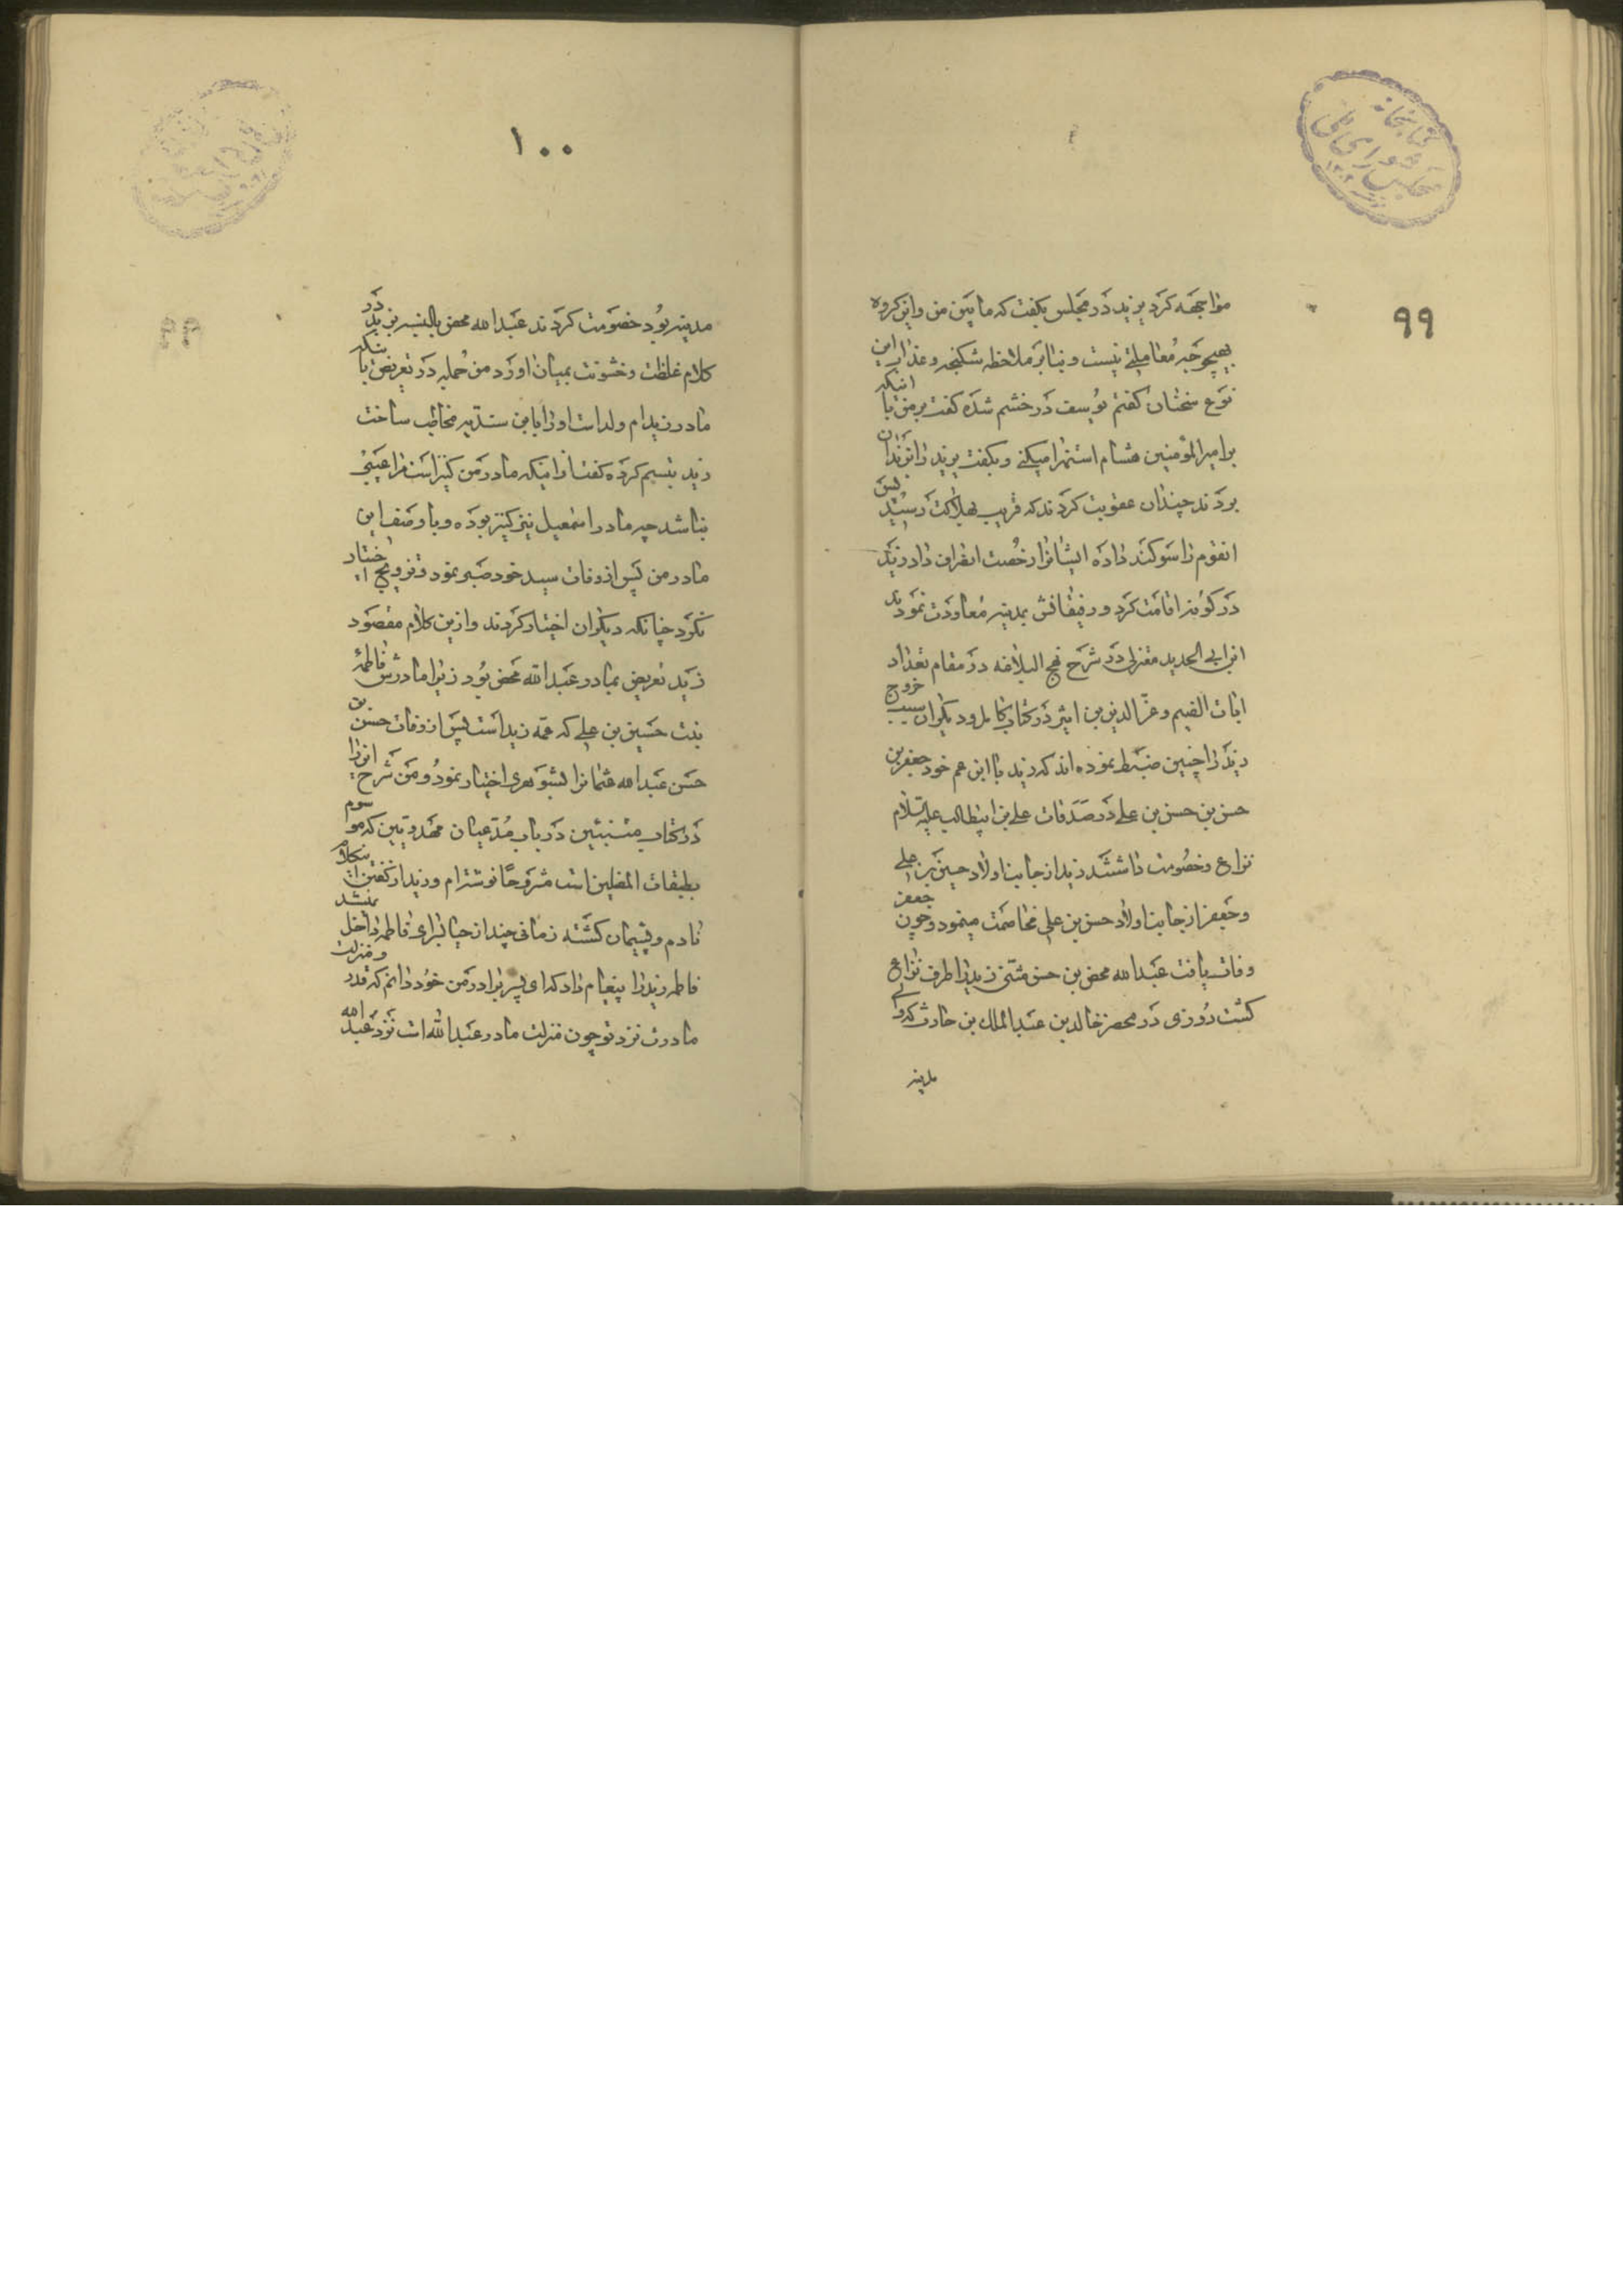 کتابخانه
مجلس شورای ملی
۹۹
مواجهه کرد یزید در مجلس بگفت که مابین من و این کروه
بهیچوجه معاملتی نیست و بنابر ملاحظه شکنجه و عذاب این
نوع سخنان کفتم یوسف در خشم شده کفت بر من یا اینکه
بر امیرالمؤمنین هشام استهزا میکنی و بکفت یزید را بزندان
بردند چندان عقوبت کردند که قریب بهلاکت رسید پس
انقوم را سوکند داده ایشانرا رخصت انصراف داد زید
در کوفه اقامت کرد و رفیقانش بمدینه معاودت نمودند
ابن ابی الحدید معتزلی در شرح نهج البلاغه در مقام تعداد
ابات الضیم و عز الدین بن اثیر در کتاب کامل و دیکران سبب خروج
زید را چنین ضبط نموده اند که زید با ابن عم خود جعفر بن
حسن بن حسن بن علی در صدقات علی بن ابیطالب علیه السلام
نزاع و خصومت داشتند زید از جانب اولاد حسین بن علی
و جعفر از جانب اولاد حسن بن علی مخاصمت مینمود و چون جعفر
وفات یافت عبدالله محض بن حسن مثنی زید را طرف نزاع
کشت روزی در محضر خالد بن عبدالملک بن حارث که والی
مدینه
۱۰۰
مدینه بود خصومت کردند عبدالله محض بالنسبه بزید در
کلام غلظت و خشونت بمیان اورد من جمله در تعریض با بنکه
مادر زید ام ولد است او را یا ابن سندیه مخاطب ساخت
زید تبسم کرده کفت از اینکه مادر من کنیز است مرا عیبی
نباشد چه مادر اسمعیل نیز کنیز بوده و با وصف این
مادر من پس از وفات سید خود صبر نمود و تزویج اختیار
نکرد چنانکه دیکران اختیار کردند و از این کلام مقصود
زید تعریض بمادر عبدالله محض بود زیرا مادرش فاطمه
بنت حسین بن علی که عمه زید است پس از وفات حسن بن
حسن عبدالله عثمانرا بشوهری اختیار نمود و من شرح انرا
در کتاب متنبئین در باب مدعیان مهدویتین که موسوم
بطبقات المضلین است مشروحا نوشته ام و زید از کفتن ان کلام
نادم و پشیمان کشته زمانی چند از حیا بسرای فاطمه داخل نمیشد
فاطمه زید را پیغام داد که ای پسر برادر من خود دانم که قدر و منزلت
مادرت نزد تو چون منزلت مادر عبدالله است نزد عبدالله